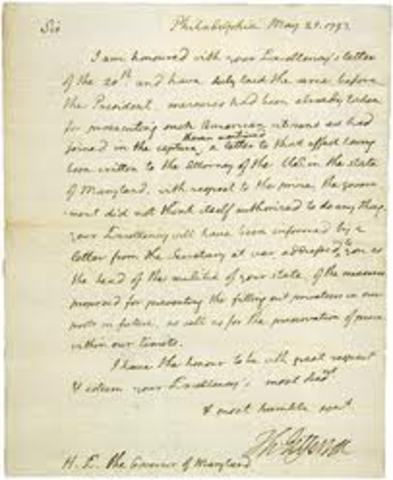 Sir
Philadelphia May 21. 1793.
I am honoured with your Excellency's letter
of the 20th and have duly laid the same before
the President. measures had been already taken
for prosecuting such American citizens as had
joined in the capture, a letter to that effect having
been written to the Attorney of the US. in the state
of Maryland. with respect to the prize, the govern-
ment did not think itself authorized to do any thing.
your Excellency will have been informed by a
letter from the Secretary at war addressed to you as
the head of the militia of your state, of the measures
proposed for preventing the fitting out privateers in our
ports in future, as well as for the preservation of peace
within our limits.
I have the honour to be with great respect
& esteem your Excellency's most
& most humble servt
Th: Jefferson
H. E. the Governor of Maryland